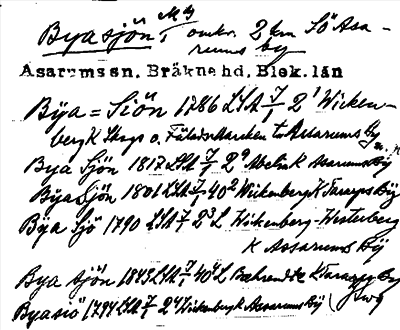 Byasjön, omkr. 2 km SÖ Asa-
rums by
Asarums sn, Bräkne hd, Blek. län
Bÿa=Siön 1786 LSA 7/1 2¹ Wicken-
berg K Skogs o. Fäladsmarken t. Assarums by
Bya Sjön 1817 LSA 7/1 2⁹ K Assarums By
Bÿa Sjön 1801 LSA 7/1 40² Wickenberg K Bÿ
Bÿa Sjö 1790 LSA 7/1 2³ Wickenberg-Westerberg
K Assarums Bÿ
Bya sjön 1843 LSA 7/1 40 K by
Byasiö 1794 LSA 7/1 2 Wickenberg K Assarums Bÿ